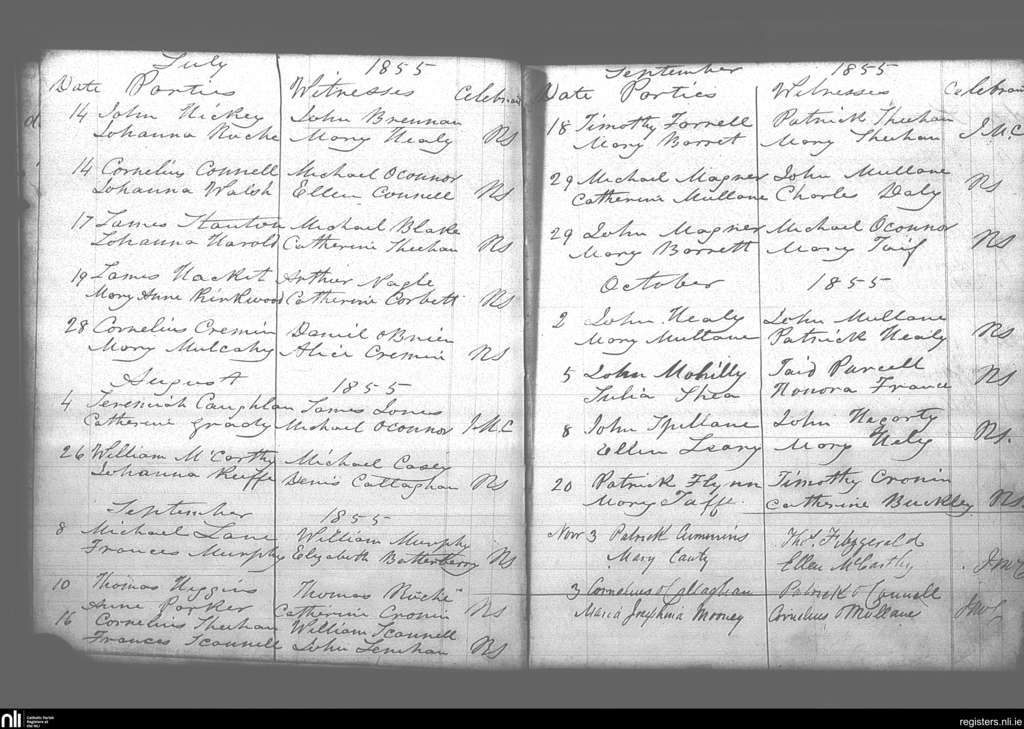 July 1855
Date Parties Witnesses Celebrant
14 John Hickey John Brennan
Johanna Roche Mary Healy RS
14 Cornelius Connell Michael Oconnor
Johanna Walsh Ellen Connell RS
17 James Stanton Michael Blake
Johanna Harold Catherine Sheehan RS
19 James Hacket Arthur Nagle
Mary Anne Kirkwood Catherine Corbett RS
28 Cornelius Cremin Daniel oBrien
Mary Mulcahy Alice Cremin RS
August 1855
4 Jeremiah Caughlan James Jones
Catherine Grady Michael Oconnor J.M.C
26 William McCarthy Michael Casey
Johanna Keiffe Denis Callaghan RS
September 1855
8 Michael Lane William Murphy
Frances Murphy Elizabeth Batterberry RS
10 Thomas Higgins Thomas Roche
Anne Parker Catherine Cronin RS
16 Cornelius Sheehan William Scannell
Frances Scannell John Lenihan RS
September 1855
Date Parties Witnesses Celebrant
18 Timothy Farrell Patrick Sheehan
Mary Barret Mary Sheehan J.M.C
29 Michael Magner John Mullane
Catherine Mullane Charles Daly RS
29 John Magner Michael Oconnor
Mary Barrett Mary Taif RS
October 1855
2 John Healy John Mullane
Mary Mullane Patrick Healy RS
5 John Mohilly Taid Purcell
Julia Shea Honora France RS
8 John Spillane John Hegorty
Ellen Leary Mary Hely RS.
20 Patrick Flynn Timothy Cronin
Mary Taffe. Catherine Buckley RS
Novr 3 Patrick Cummins Thos. Fitzgerald
Mary Canty Ellen McCarthy JMC
3 Cornelius O'Callaghan Patrick O'Connell
Maria Josephina Mooney Cornelius O'Mullane JMC
nli
Catholic Parish
Registers at
the NLI
registers.nli.ie